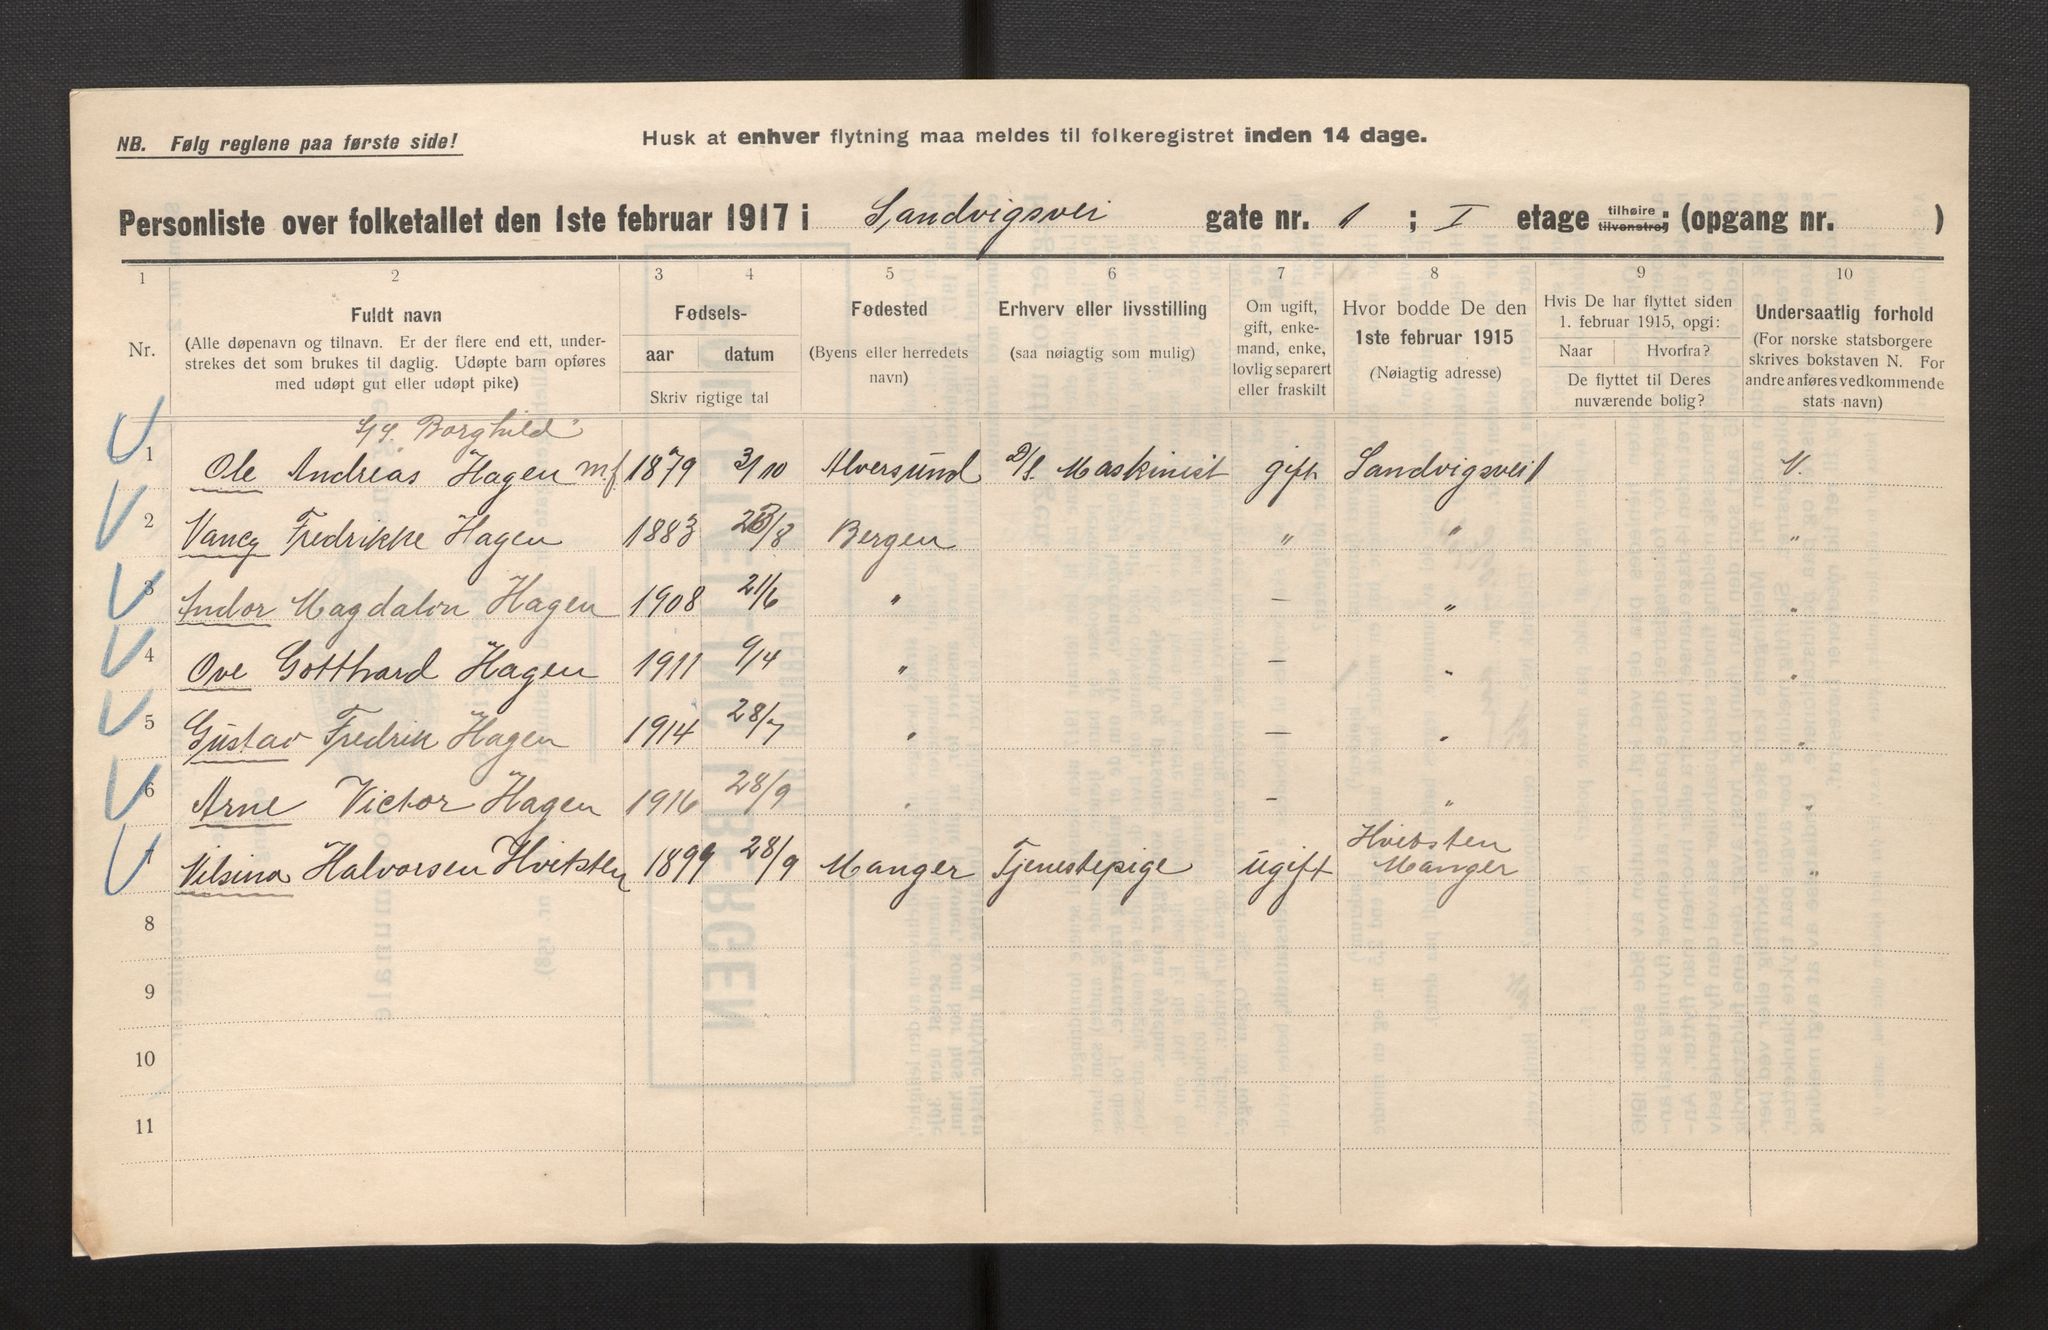 NB. Følg reglene paa første side!
Husk at enhver flytning maa meldes til folkeregistret inden 14 dage.
Personliste over folketallet den 1ste februar 1917 i Sandvigsvei gate nr. 1 ; I etage tilhøire tilvenstre; (opgang nr. )
1 2 3 4 5 6 7 8 9 10
Nr.
Fuldt navn
(Alle døpenavn og tilnavn. Er der flere end ett, under-
strekes det som brukes til daglig. Udøpte barn opføres
med udøpt gut eller udøpt pike)
Fødsels-
aar datum
Skriv rigtige tal
Fødested
(Byens eller herredets
navn)
Erhverv eller livsstilling
(saa nøiagtig som mulig)
Om ugift,
gift, enke-
mand, enke,
lovlig separert
eller fraskilt
Hvor bodde De den
1ste februar 1915
(Nøiagtig adresse)
Hvis De har flyttet siden
1. februar 1915, opgi:
Naar Hvorfra?
De flyttet til Deres
nuværende bolig?
Undersaatlig forhold
(For norske statsborgere
skrives bokstaven N. For
andre anføres vedkommende
stats navn)
S/S. Borghild
1 Ole Andreas Hagen m.f 1879 3/10 Alversund D/S. Maskinist gift Sandvigsvei 1 N.
2 Vancy Fredrikke Hagen 1883 23/8 Bergen " " "
3 Andor Magdalon Hagen 1908 21/6 " — " "
4 Ove Gotthard Hagen 1911 9/4 " — " "
5 Gustav Fredrik Hagen 1914 28/7 " — " "
6 Arne Victor Hagen 1916 28/9 " — " "
7 Vilsina Halvorsen Hvitsten 1899 28/9 Manger Tjenestepige ugift Hvitsten Manger "
8
9
10
11